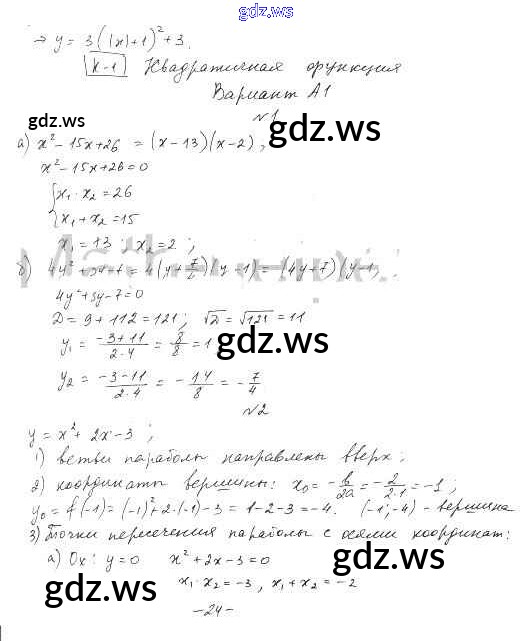 gdz.ws
⇒ y = 3(|x|+1)² + 3.
К-1 Квадратичная функция
Вариант А1
gdz.ws
№1
gdz.ws
а) x² - 15x + 26 = (x - 13)(x - 2),
x² - 15x + 26 = 0
{x₁ · x₂ = 26
x₁ + x₂ = 15
x₁ = 13; x₂ = 2;
б) 4y² + 3y - 7 = 4(y + 7/4)(y - 1) = (4y + 7)(y - 1)
4y² + 3y - 7 = 0
D = 9 + 112 = 121; √D = √121 = 11
y₁ = (-3+11)/(2·4) = 8/8 = 1
gdz.ws
gdz.ws
y₂ = (-3-11)/(2·4) = -14/8 = -7/4
№2
y = x² + 2x - 3;
1) ветви параболы направлены вверх;
2) координаты вершины: x₀ = -b/2a = -2/(2·1) = -1;
gdz.ws
gdz.ws
y₀ = f(-1) = (-1)² + 2·(-1) - 3 = 1 - 2 - 3 = -4. (-1; -4) - вершина
3) Точки пересечения параболы с осями координат:
а) Ox: y = 0 x² + 2x - 3 = 0
gdz.ws
gdz.ws
x₁ · x₂ = -3, x₁ + x₂ = -2
-24-